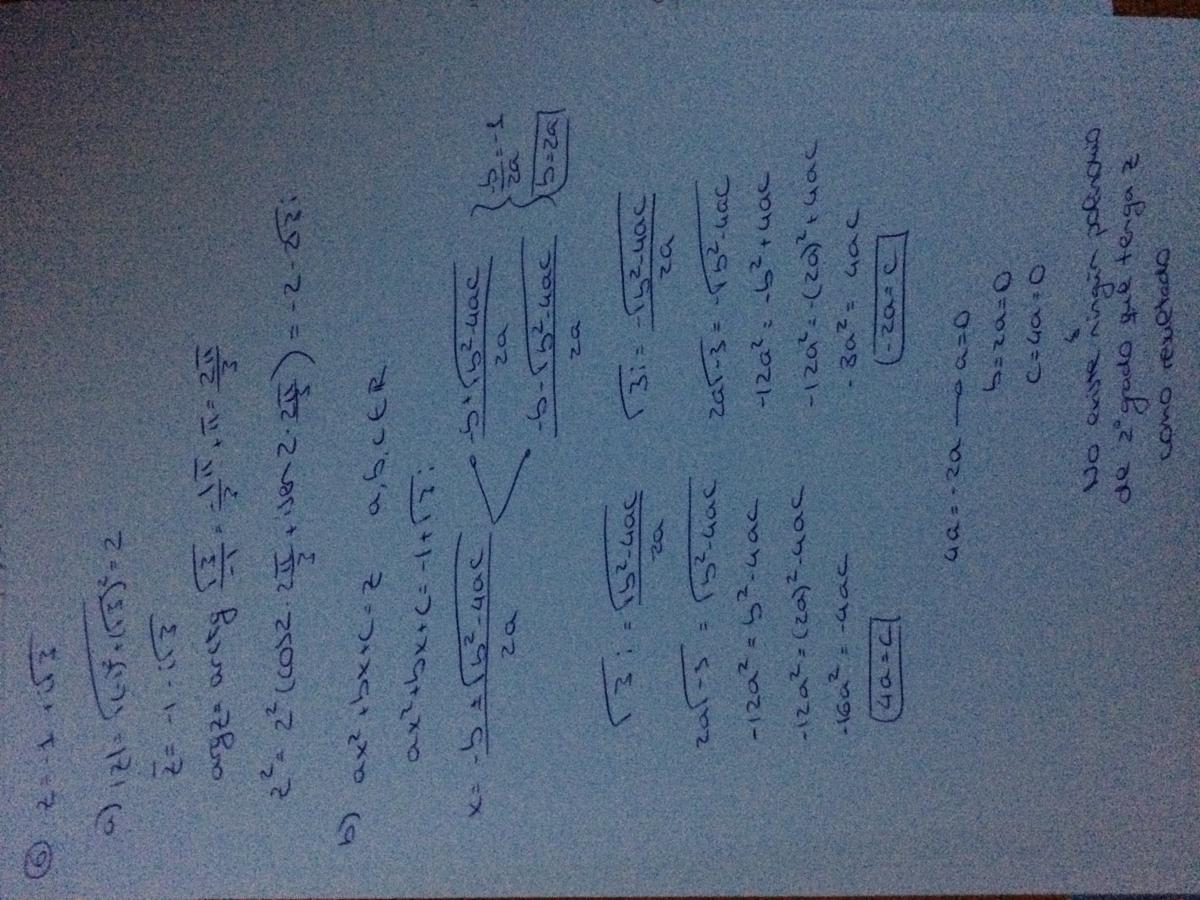 6 z = -1 + i√3
a) |z| = √((-1)² + (√3)²) = 2
z̄ = -1 - i√3
arg z = arctg √3/-1 = -π/3 + π = 2π/3
z² = 2² (cos 2 · 2π/3 + i sen 2 · 2π/3) = -2 - 2√3 i
b) ax² + bx + c = z a, b, c ∈ R
ax² + bx + c = -1 + √3 i
x = (-b ± √(b² - 4ac))/2a
(-b + √(b² - 4ac))/2a
(-b - √(b² - 4ac))/2a
{ b/2a = -1
b = 2a
√3 i = √(b² - 4ac)/2a
2a√-3 = √(b² - 4ac)
-12a² = b² - 4ac
-12a² = (2a)² - 4ac
-16a² = -4ac
4a = c
√3 i = -√(b² - 4ac)/2a
2a√-3 = -√(b² - 4ac)
-12a² = -b² + 4ac
-12a² = -(2a)² + 4ac
-8a² = 4ac
-2a = c
4a = -2a → a = 0
b = 2a = 0
c = 4a = 0
No existe ningún polinomio
de 2º grado que tenga z
como resultado